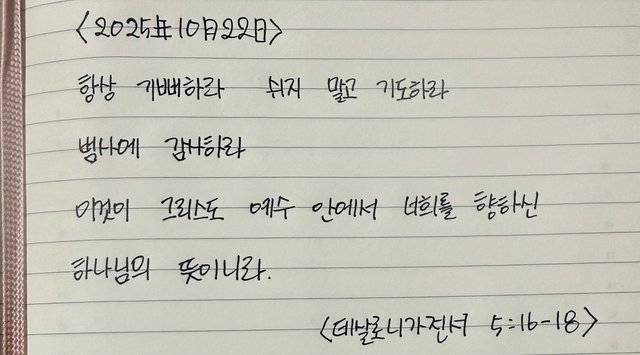 <2025年10月22日>
항상 기뻐하라 쉬지 말고 기도하라
범사에 감사하라
이것이 그리스도 예수 안에서 너희를 향하신
하나님의 뜻이니라.
<데살로니가전서 5:16-18>